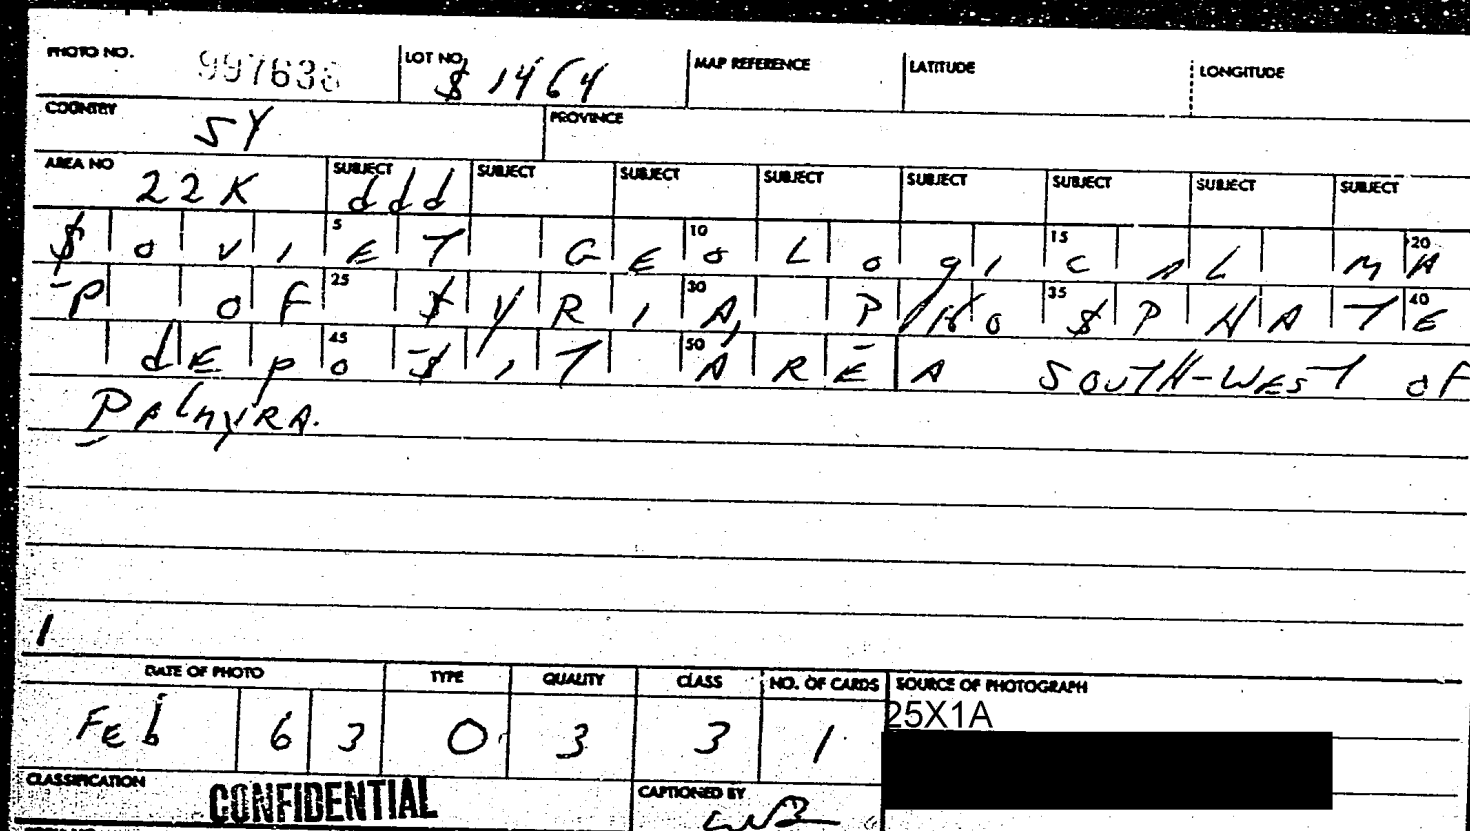 PHOTO NO. 997638 LOT NO. $ 1464 MAP REFERENCE LATITUDE LONGITUDE
COUNTRY SY PROVINCE
AREA NO 22K SUBJECT ddd SUBJECT SUBJECT SUBJECT SUBJECT SUBJECT SUBJECT SUBJECT
5 10 15 20
$OVIET GEOLOgICAL MA
25 30 35 40
P OF $YRIA, PHO$PHATE
45 50
dEpo$IT AREA SOUTH-WEST OF
PALMYRA.
1
DATE OF PHOTO TYPE QUALITY CLASS NO. OF CARDS SOURCE OF PHOTOGRAPH
25X1A
FEb 6 3 0 3 3 1
CLASSIFICATION CONFIDENTIAL CAPTIONED BY